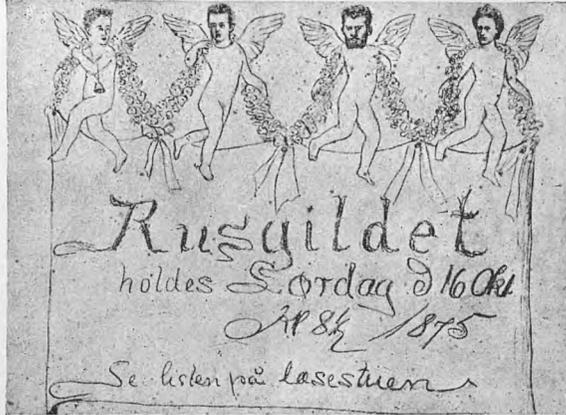 Rusgildet
holdes Lørdag d 16 Okt.
Kl 8½ 1875
Se listen på læsestuen